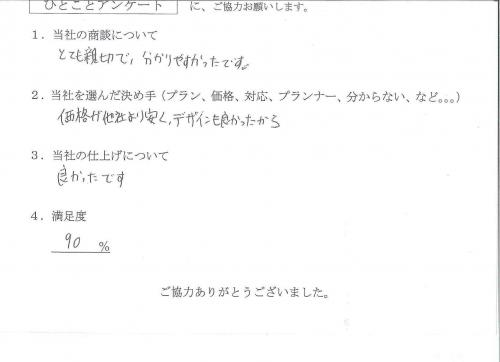 ひとことアンケート に、ご協力お願いします。
1．当社の商談について
とても親切で、分かりやすかったです。
2．当社を選んだ決め手（プラン、価格、対応、プランナー、分からない、など。。。）
価格が他社より安く、デザインも良かったから
3．当社の仕上げについて
良かったです
4．満足度
90 %
ご協力ありがとうございました。